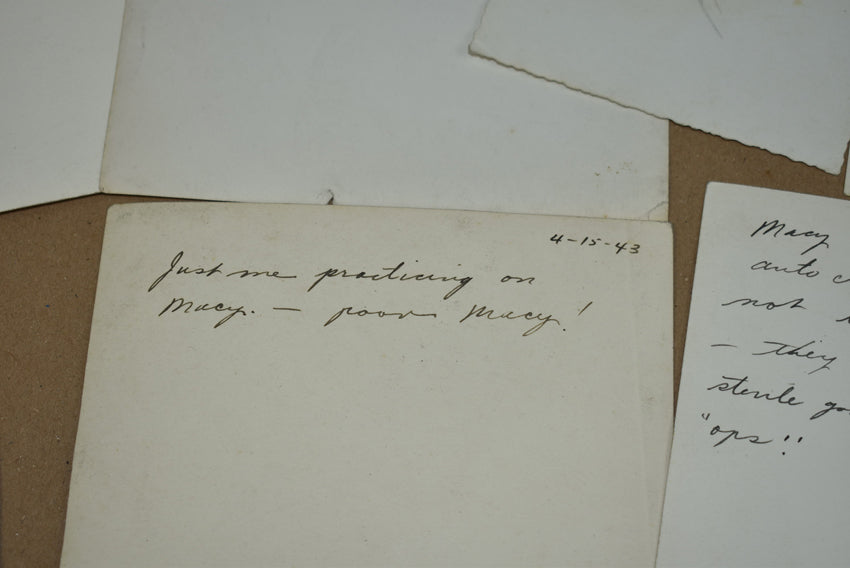 4-15-43
Just me practicing on
Macy. — poor Macy!
Macy
auto
not
— they
sterile
"ops!!